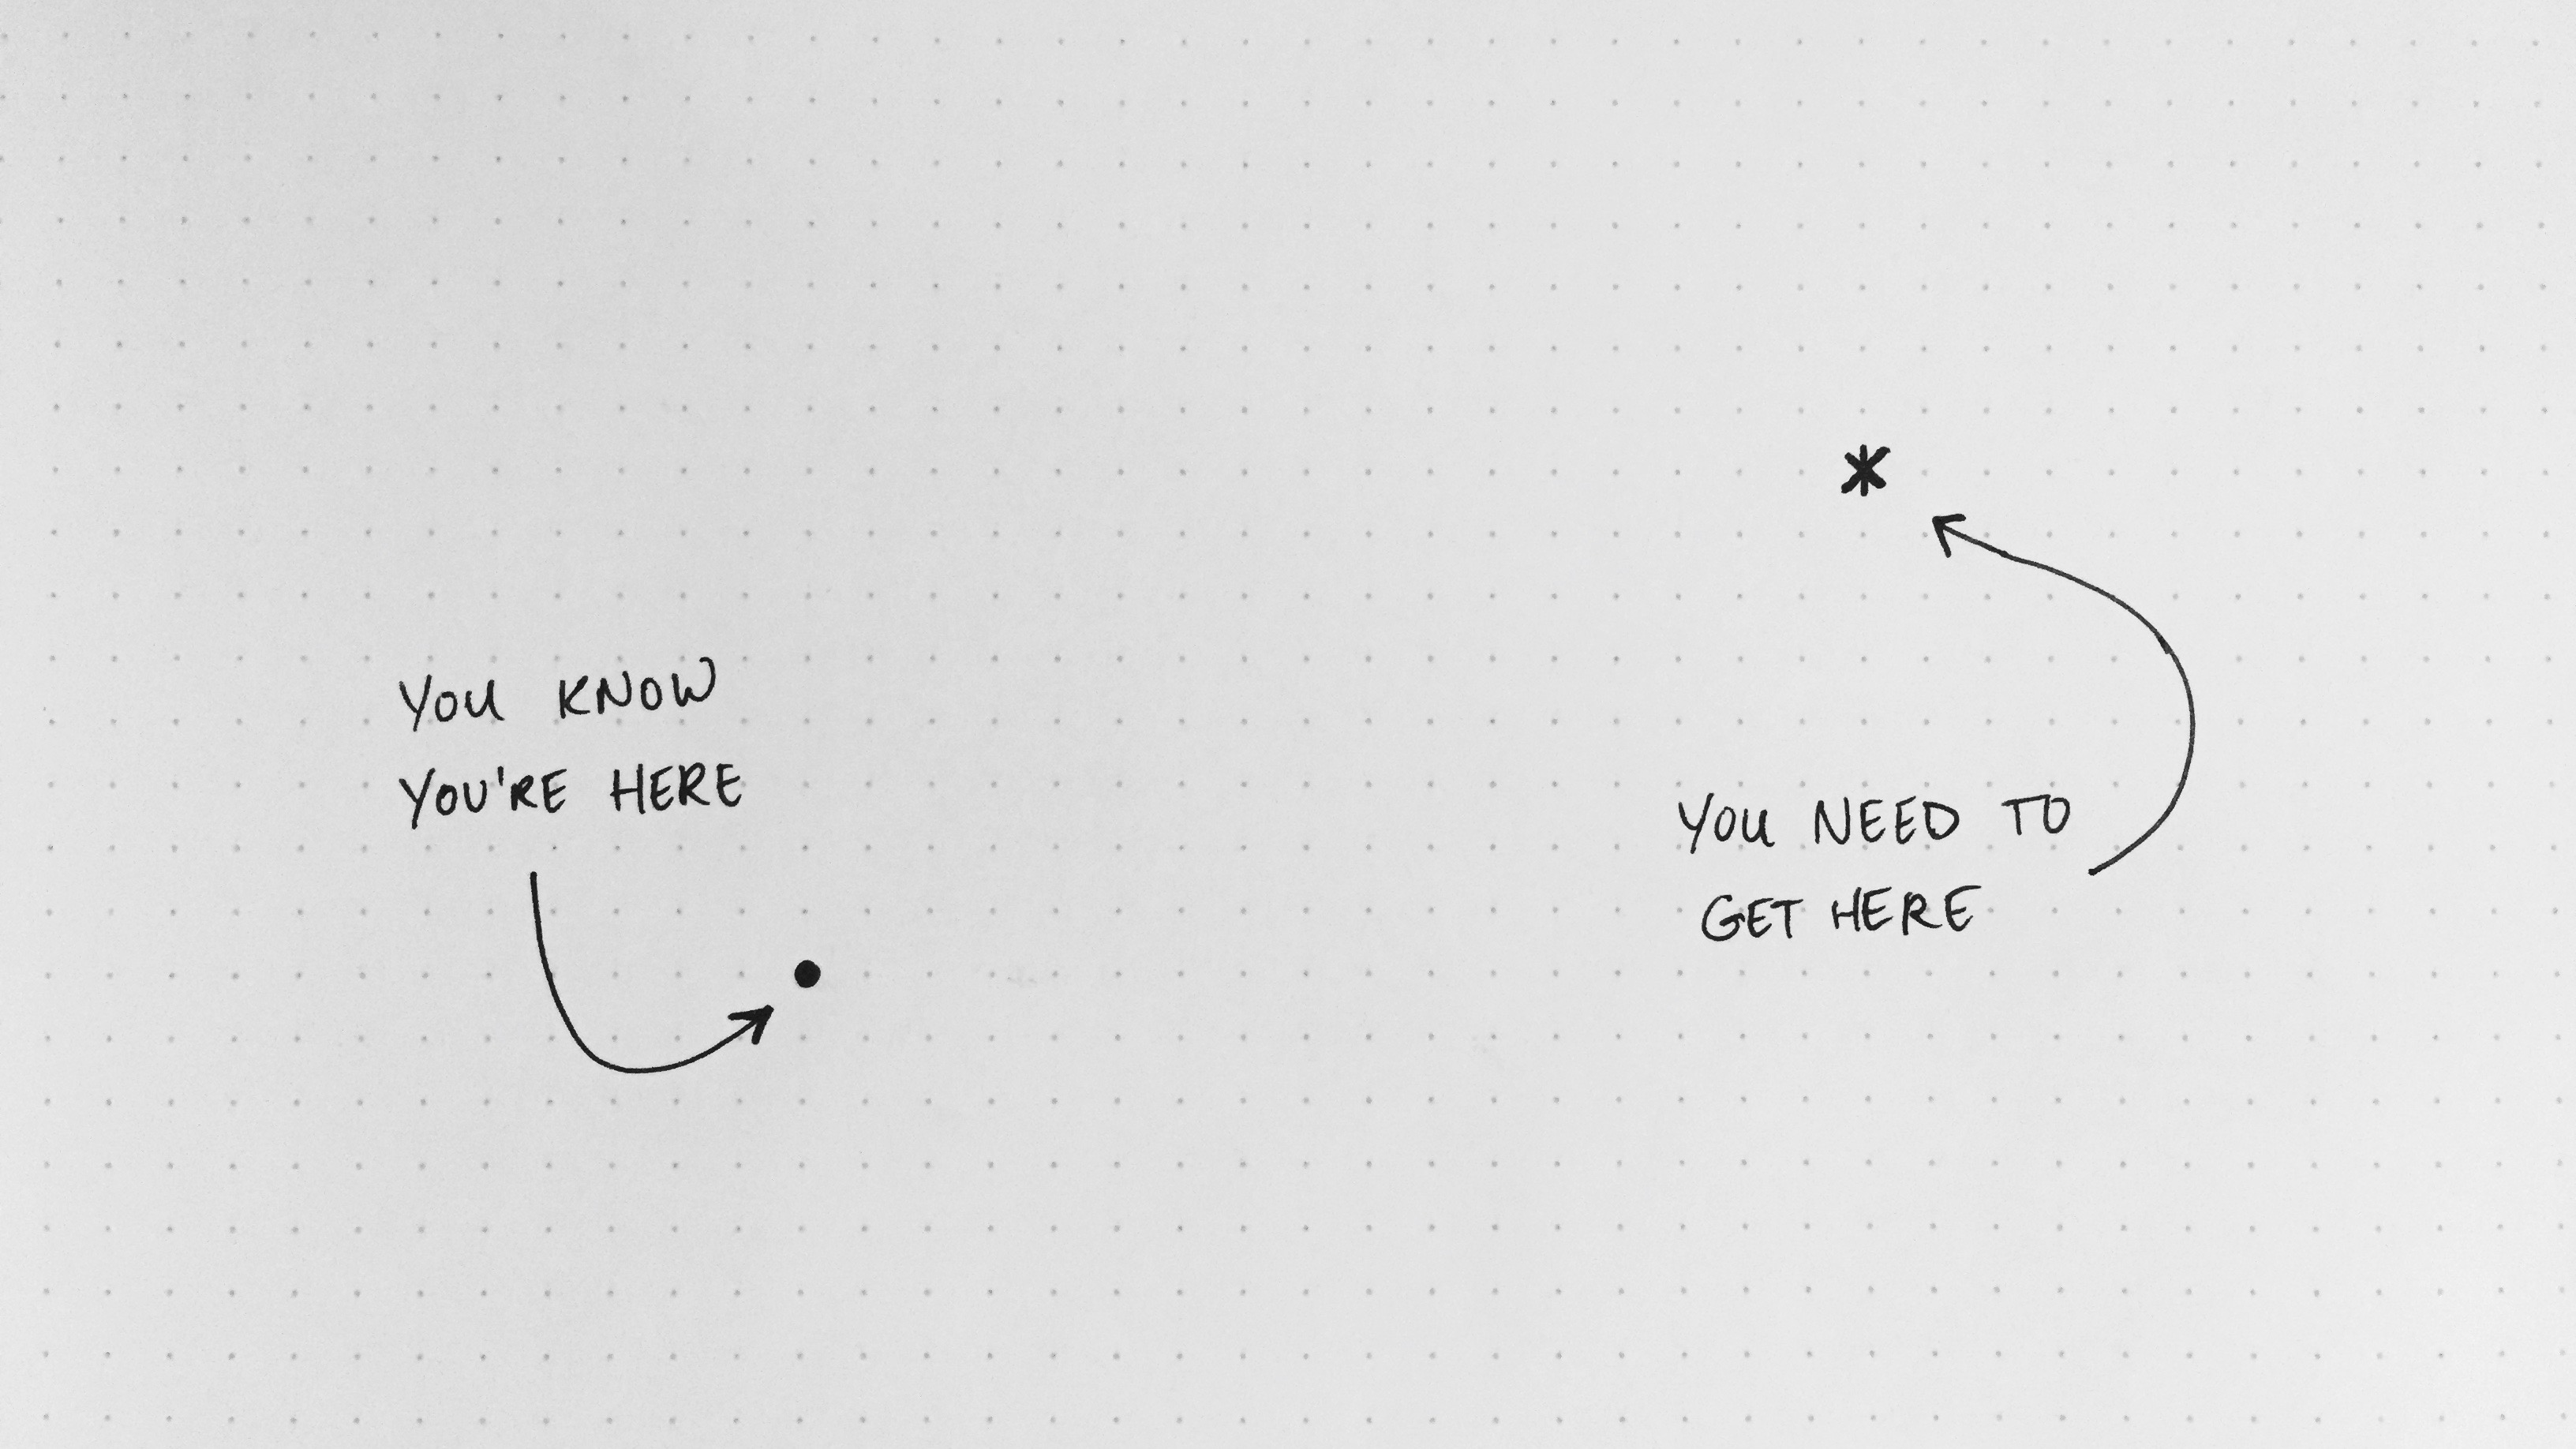 YOU KNOW
YOU'RE HERE
YOU NEED TO
GET HERE